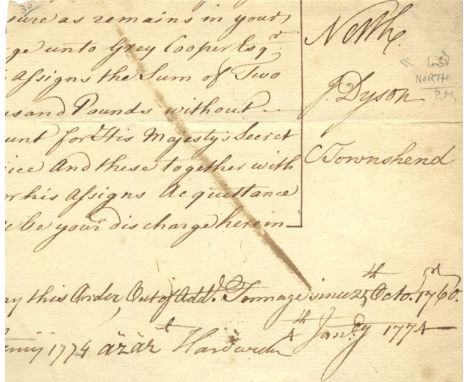 30
sure as remains in your
ge unto Grey Cooper Esqr.
Assigns the Sum of Two
usand Pounds without
unt for His Majesty's Secret
ice And these together with
or his Assigns Acquittance
be your discharge herein
North
J Dyson
C Townshend
Lord
NORTH
P.M.
ay this Order, Out of Addl. Tonnage since 25th Octo. 1760.
4th Jany 1774
1774